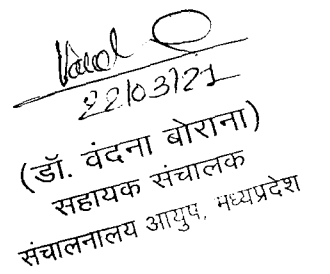 22/03/21
(डॉ. वंदना बोराना)
सहायक संचालक
संचालनालय आयुष, मध्यप्रदेश